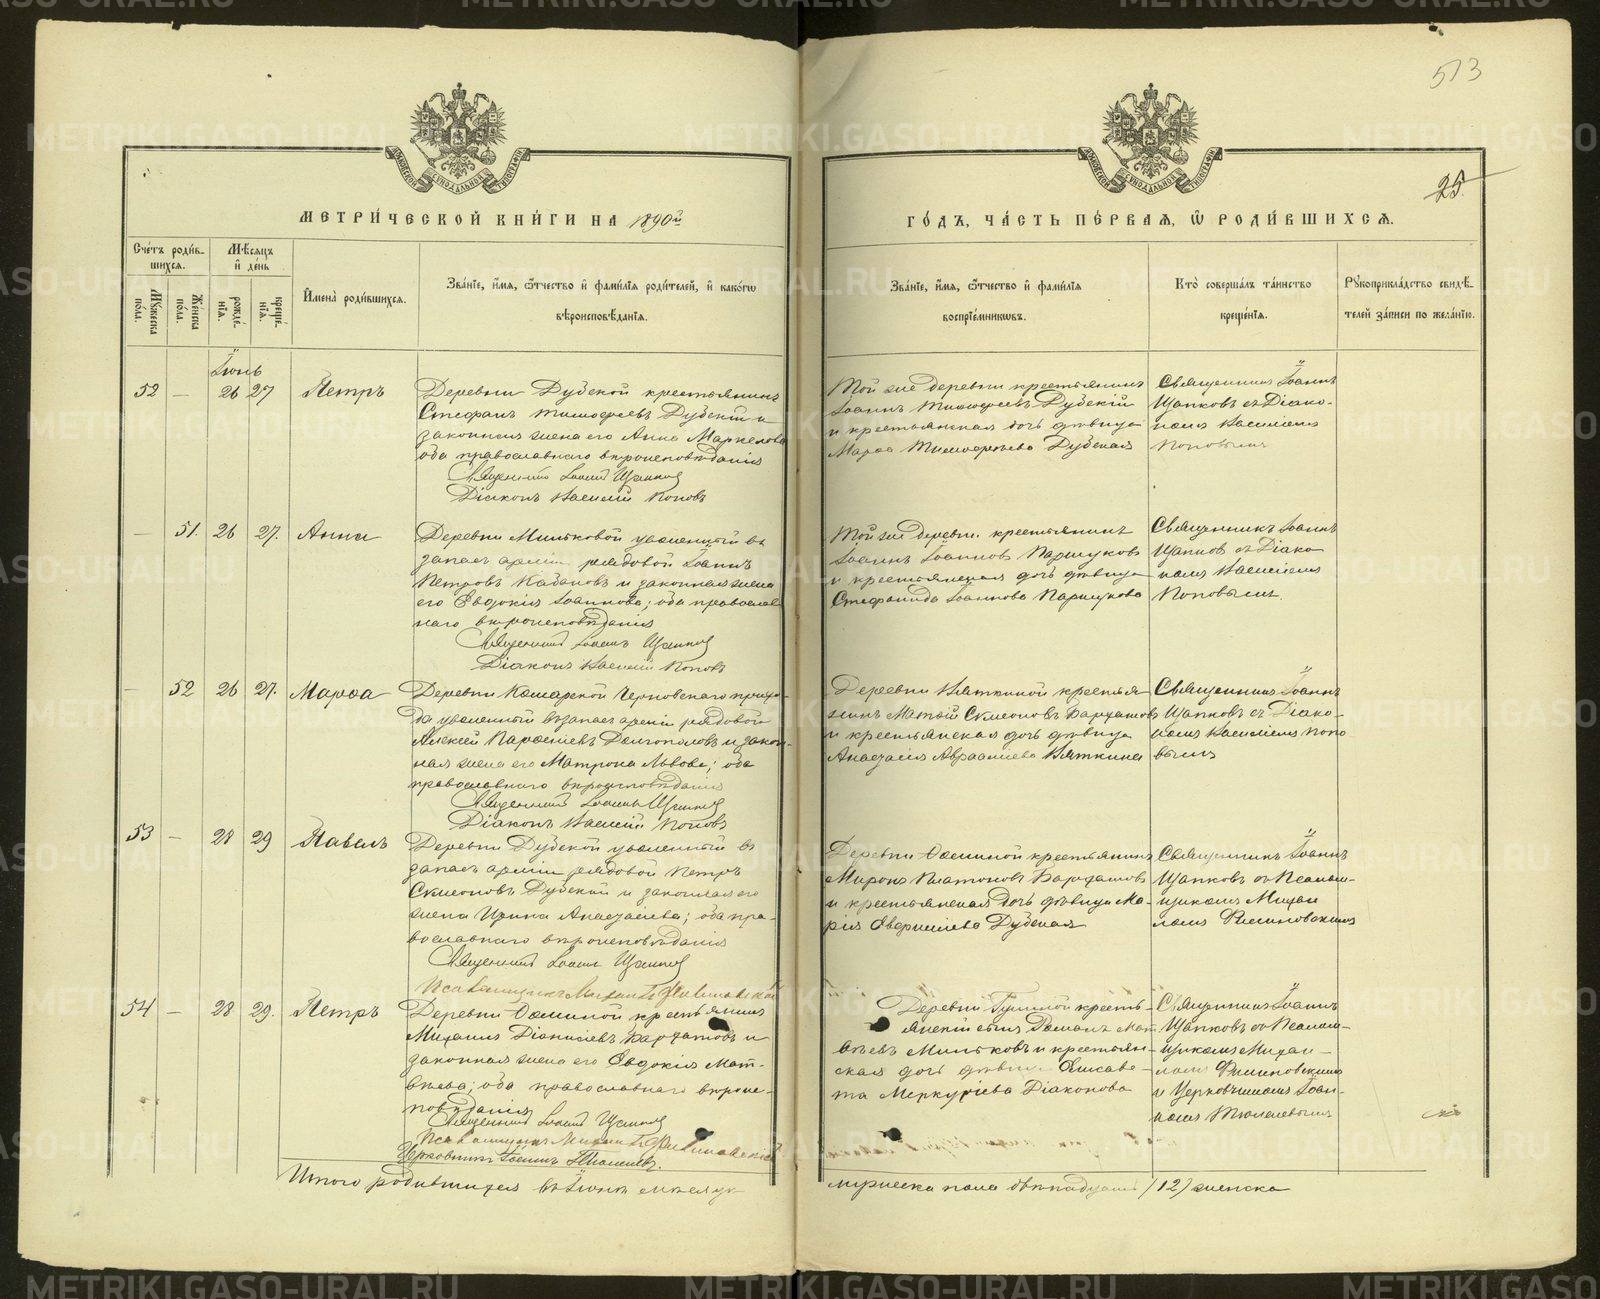 513
25.
МЕТРИ́ЧЕСКОЙ КНИ́ГИ НА 1890й
ГО́ДЪ, ЧА́СТЬ ПЕ́РВАЯ, Ѽ РОДИ́ВШИХСЯ.
Сче́тъ роди́в-
шихся.
Мѣсяцъ
и҆ де́нь
Мꙋжеска по́ла.
Же́нска по́ла.
рожде́нїѧ.
креще́нїѧ.
И҆мена̀ роди́вшихся.
Зва́нїе, и҆́мя, ѻ҆́тчество и҆ фами́лїя роди́телей, и҆ како́гѡ
вѣроисповѣ́данїя.
Зва́нїе, и҆́мя, ѻ҆́тчество и҆ фами́лїя
воспрїе́мникѡвъ.
Кто̀ соверша́лъ та́инство
креще́нїя.
Рꙋкоприкла́дство свидѣ́-
телей за́писи по жела́нїю.
Іюнь
52 — 26 27 Петръ
Деревни Дубской крестьянинъ
Стефанъ Тимофеевъ Дубскій и
законная жена его Анна Маркелова
оба православнаго вѣроисповѣданія
Священникъ Іоаннъ Щапковъ
Діаконъ Василій Поповъ
Той же деревни крестьянинъ
Іоаннъ Тимофеевъ Дубскій
и крестьянская дочь дѣвица
Марѳа Тимофеева Дубская
Священникъ Іоаннъ
Щапковъ съ Діако-
номъ Василіемъ
Поповымъ
— 51. 26 27. Анна
Деревни Миньковой уволенный въ
запасъ арміи рядовой Іоаннъ
Петровъ Кабановъ и законная жена
его Евдокія Іоаннова; оба православ
наго вѣроисповѣданія
Священникъ Іоаннъ Щапковъ
Діаконъ Василій Поповъ
Той же деревни крестьянинъ
Іоаннъ Іоанновъ Паршуковъ
и крестьянская дочь дѣвица
Стефанида Іоаннова Паршукова
Священникъ Іоаннъ
Щапковъ съ Діако
номъ Василіемъ
Поповымъ.
— 52 26 27. Марѳа
Деревни Комарской Черновскаго прихо-
да уволенный въ запасъ арміи рядовой
Алексій Парѳеніевъ Долгополовъ и закон-
ная жена его Матрона Львова; оба
православнаго вѣроисповѣданія
Священникъ Іоаннъ Щапковъ
Діаконъ Василій Поповъ
Деревни Вяткиной крестья
нинъ Матѳій Симеоновъ Бархатовъ
и крестьянская дочь дѣвица
Анастасія Авраамiева Вяткина
Священникъ Іоаннъ
Щапковъ съ Діако-
номъ Василіемъ Попо
вымъ
53 — 28 29 Павелъ
Деревни Дубской уволенный въ
запасъ арміи рядовой Петръ
Симеоновъ Дубскій и законная его
жена Ирина Анастасіева; оба пра-
вославнаго вѣроисповѣданія
Священникъ Іоаннъ Щапковъ
Псаломщикъ Михаилъ Филиновскій
Деревни Ѳоминой крестьянинъ
Миронъ Платоновъ Бархатовъ
и крестьянская дочь дѣвица Ма-
рія Дубская
Священникъ Іоаннъ
Щапковъ съ Псалом-
щикомъ Михаи
ломъ Филиновскимъ
54 — 28 29. Петръ
Деревни Ѳоминой крестьянинъ
Михаилъ Діонисіевъ Бархатовъ и
законная жена его Евдокія Мат-
вѣева; оба православнаго вѣроис-
повѣданія
Священникъ Іоаннъ Щапковъ
Псаломщикъ Михаилъ Филиновскій
Церковникъ Іоаннъ
Деревни крестъ-
янскій сынъ Романъ Мат-
вѣевъ Миньковъ и крестьян-
ская дочь дѣвица Елисаве-
та Меркурьева Діаконова
Священникъ Іоаннъ
Щапковъ съ Псалом-
щикомъ Михаи-
ломъ Филиновскимъ
и Церковникомъ Іоан-
номъ
Итого родившихся въ Іюнѣ мѣсяцѣ
мужеска пола двѣнадцать (12) женска
METRIKI.GASO-URAL.RU